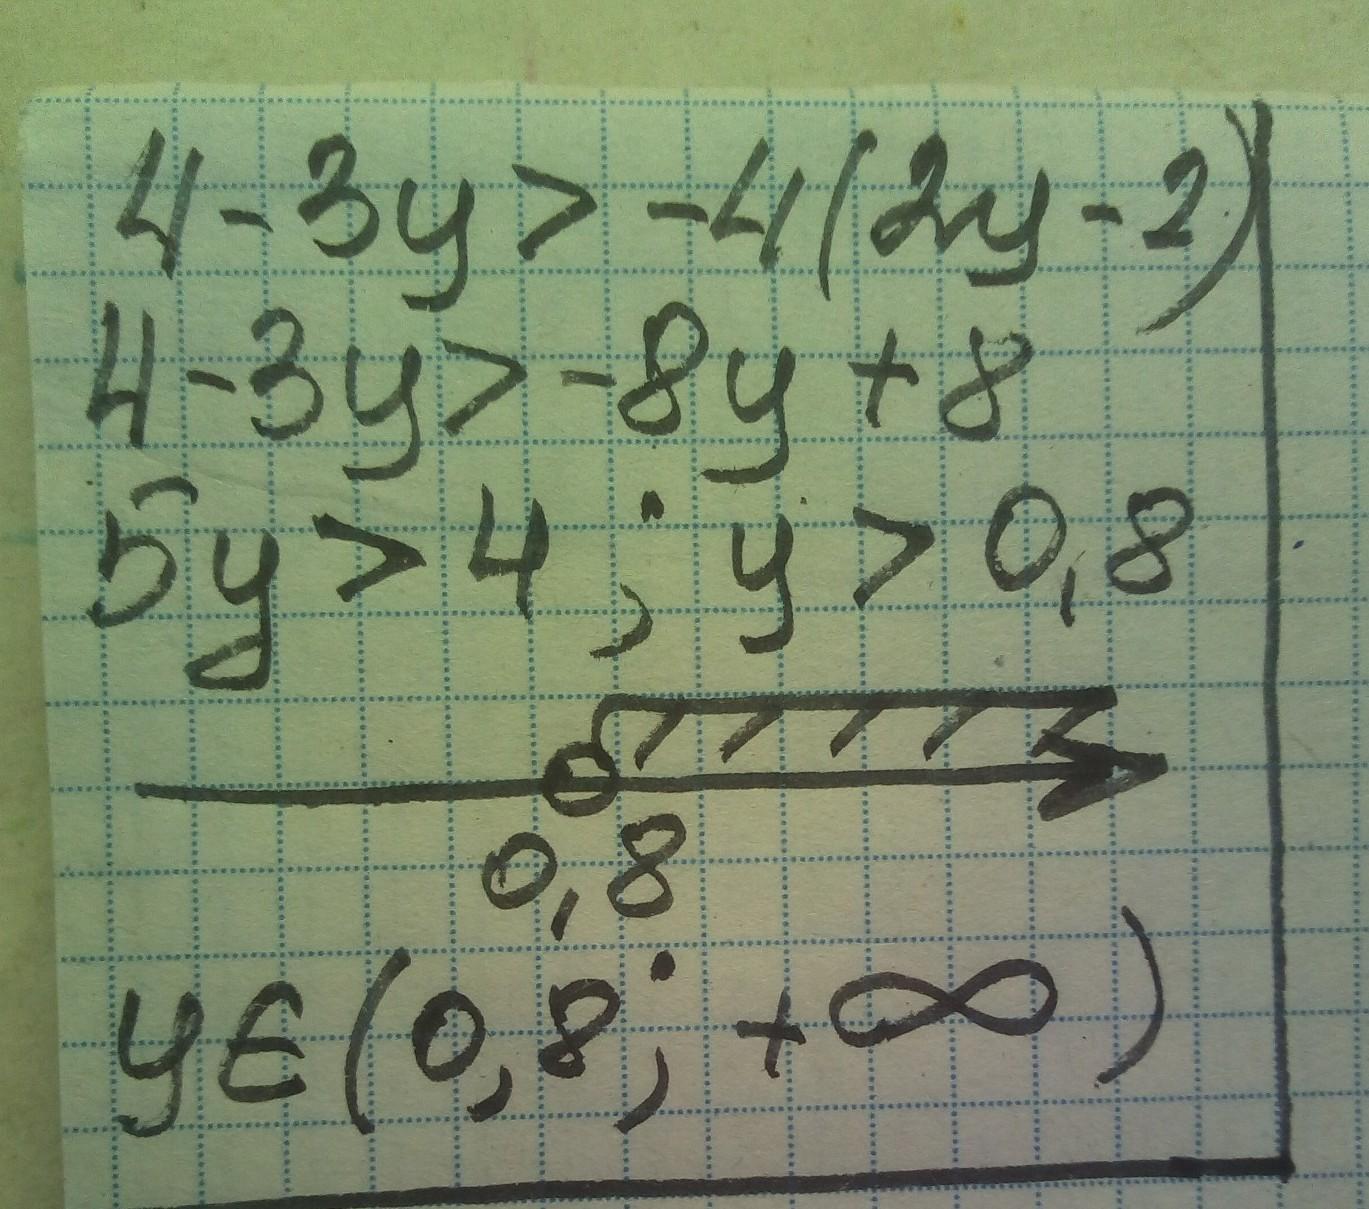 4-3y > -4(2y-2)
4-3y > -8y + 8
5y > 4 ; y > 0,8
0,8
y ∈ (0,8; +∞)